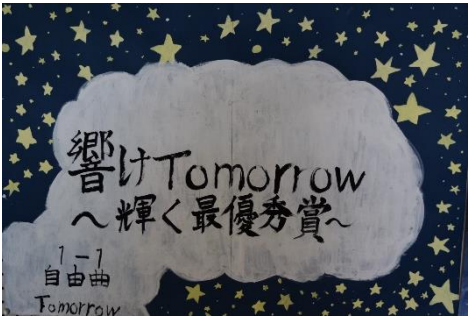 響けTomorrow
～輝く最優秀賞～
1-1
自由曲
Tomorrow